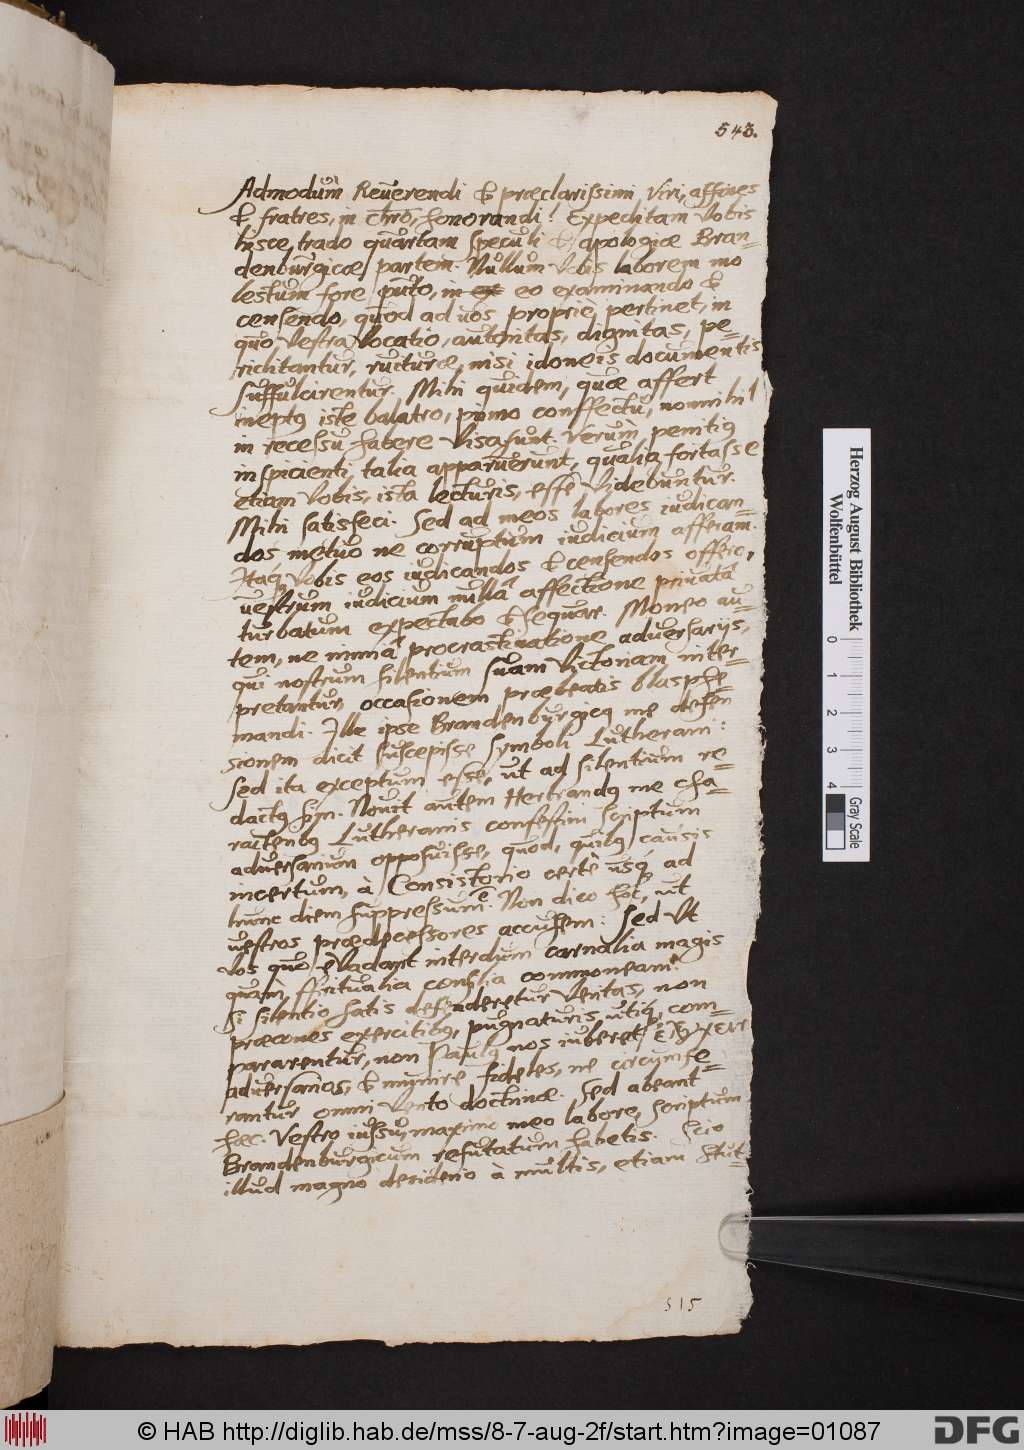 543.
Admodùm Reverendi & præclarissimi Viri, affines
& fratres, in Chrō, honorandi! Expeditam Vobis
hisce trado quartam Speculi & apologiæ Bran-
denburgicæ partem. Nullum Vobis laborem mo
lestum fore puto, in ex eo examinando &
censendo, quod ad vos propriè pertinet, in
quo Vestra Vocatio, autoritas, dignitas, pe-
riclitantur, ruituræ, nisi idoneis documentis
suffulcirentur. Mihi quidem, quæ affert
ineptus iste balatro, primo conspectu, nonnihil
in recessu habere Visa sunt. Verùm, penitius
inspicienti, talia apparuerunt, qualia fortasse
etiam Vobis, ista lecturis, esse Videbuntur.
Mihi satisfeci. Sed ad meos labores iudican-
dos metuo ne corruptum iudicium afferam.
Itaq; Vobis eos iudicandos & censendos offero,
vestrum iudicium nullâ affectione privatâ
turbatum expectabo & sequar. Moneo au-
tem, ne nimiâ procrastinatione adversarijs,
qui nostrum silentium suam Victoriam inter-
pretantur, occasionem præbeatis blasphe-
mandi. Ille ipse Brandenburgicus me defen
sionem dicit suscepisse Symboli Lutherani:
Sed ita exceptum esse, ut ad silentium re-
dactus sim. Novit autem Hertrandus me cha-
racteribus Lutheranis confestim scriptum
adversarium opposuisse, quod, quibus causis
incertum, à Consistorio certè usq; ad
hunc diem suppressum ē. Non dico hoc, ut
vestros prædecessores accusem: Sed Vt
Vos quo evadant interdum carnalia magis
quàm spiritualia consilia commoneam.
Si silentio satis defenderetur Veritas, non
præcones exercitibus, pugnaturis utiq;, com-
pararentur, non Paulus nos iuberet ἐλέγχειν
adversarios, & munire fideles, ne circumfe-
rantur omni Vento doctrinæ. Sed abeant
hæc. Vestro iussu, maximo meo labore, scriptum
Brandenburgicum refutatum habetis. Scio
illud magno desiderio à multis, etiam Stut-
515
Herzog August Bibliothek
Wolfenbüttel
0 1 2 3 4
Gray Scale
© HAB http://diglib.hab.de/mss/8-7-aug-2f/start.htm?image=01087
DFG